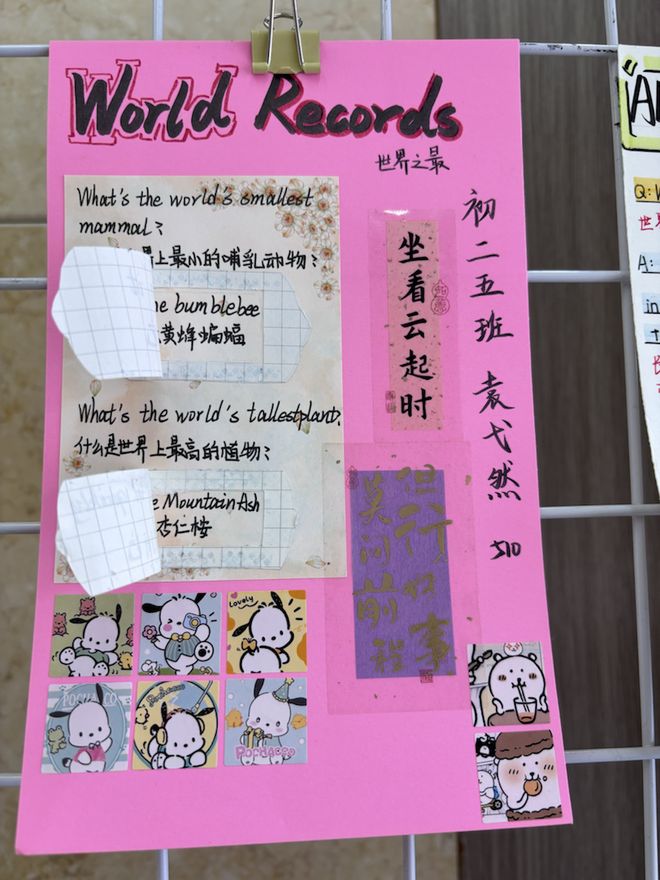 World Records
世界之最
What's the world's smallest
mammal?
上最小的哺乳动物?
he bumblebee
黄烽蝙蝠
What's the world's tallestplant?
什么是世界上最高的植物?
e Mountain Ash
杏仁桉
坐看云起时
但行好事
莫问前程
初二五班 袁弋然
510
Lovely
POCHACCO
Pochacco
Pochacco
Q:
A:
in